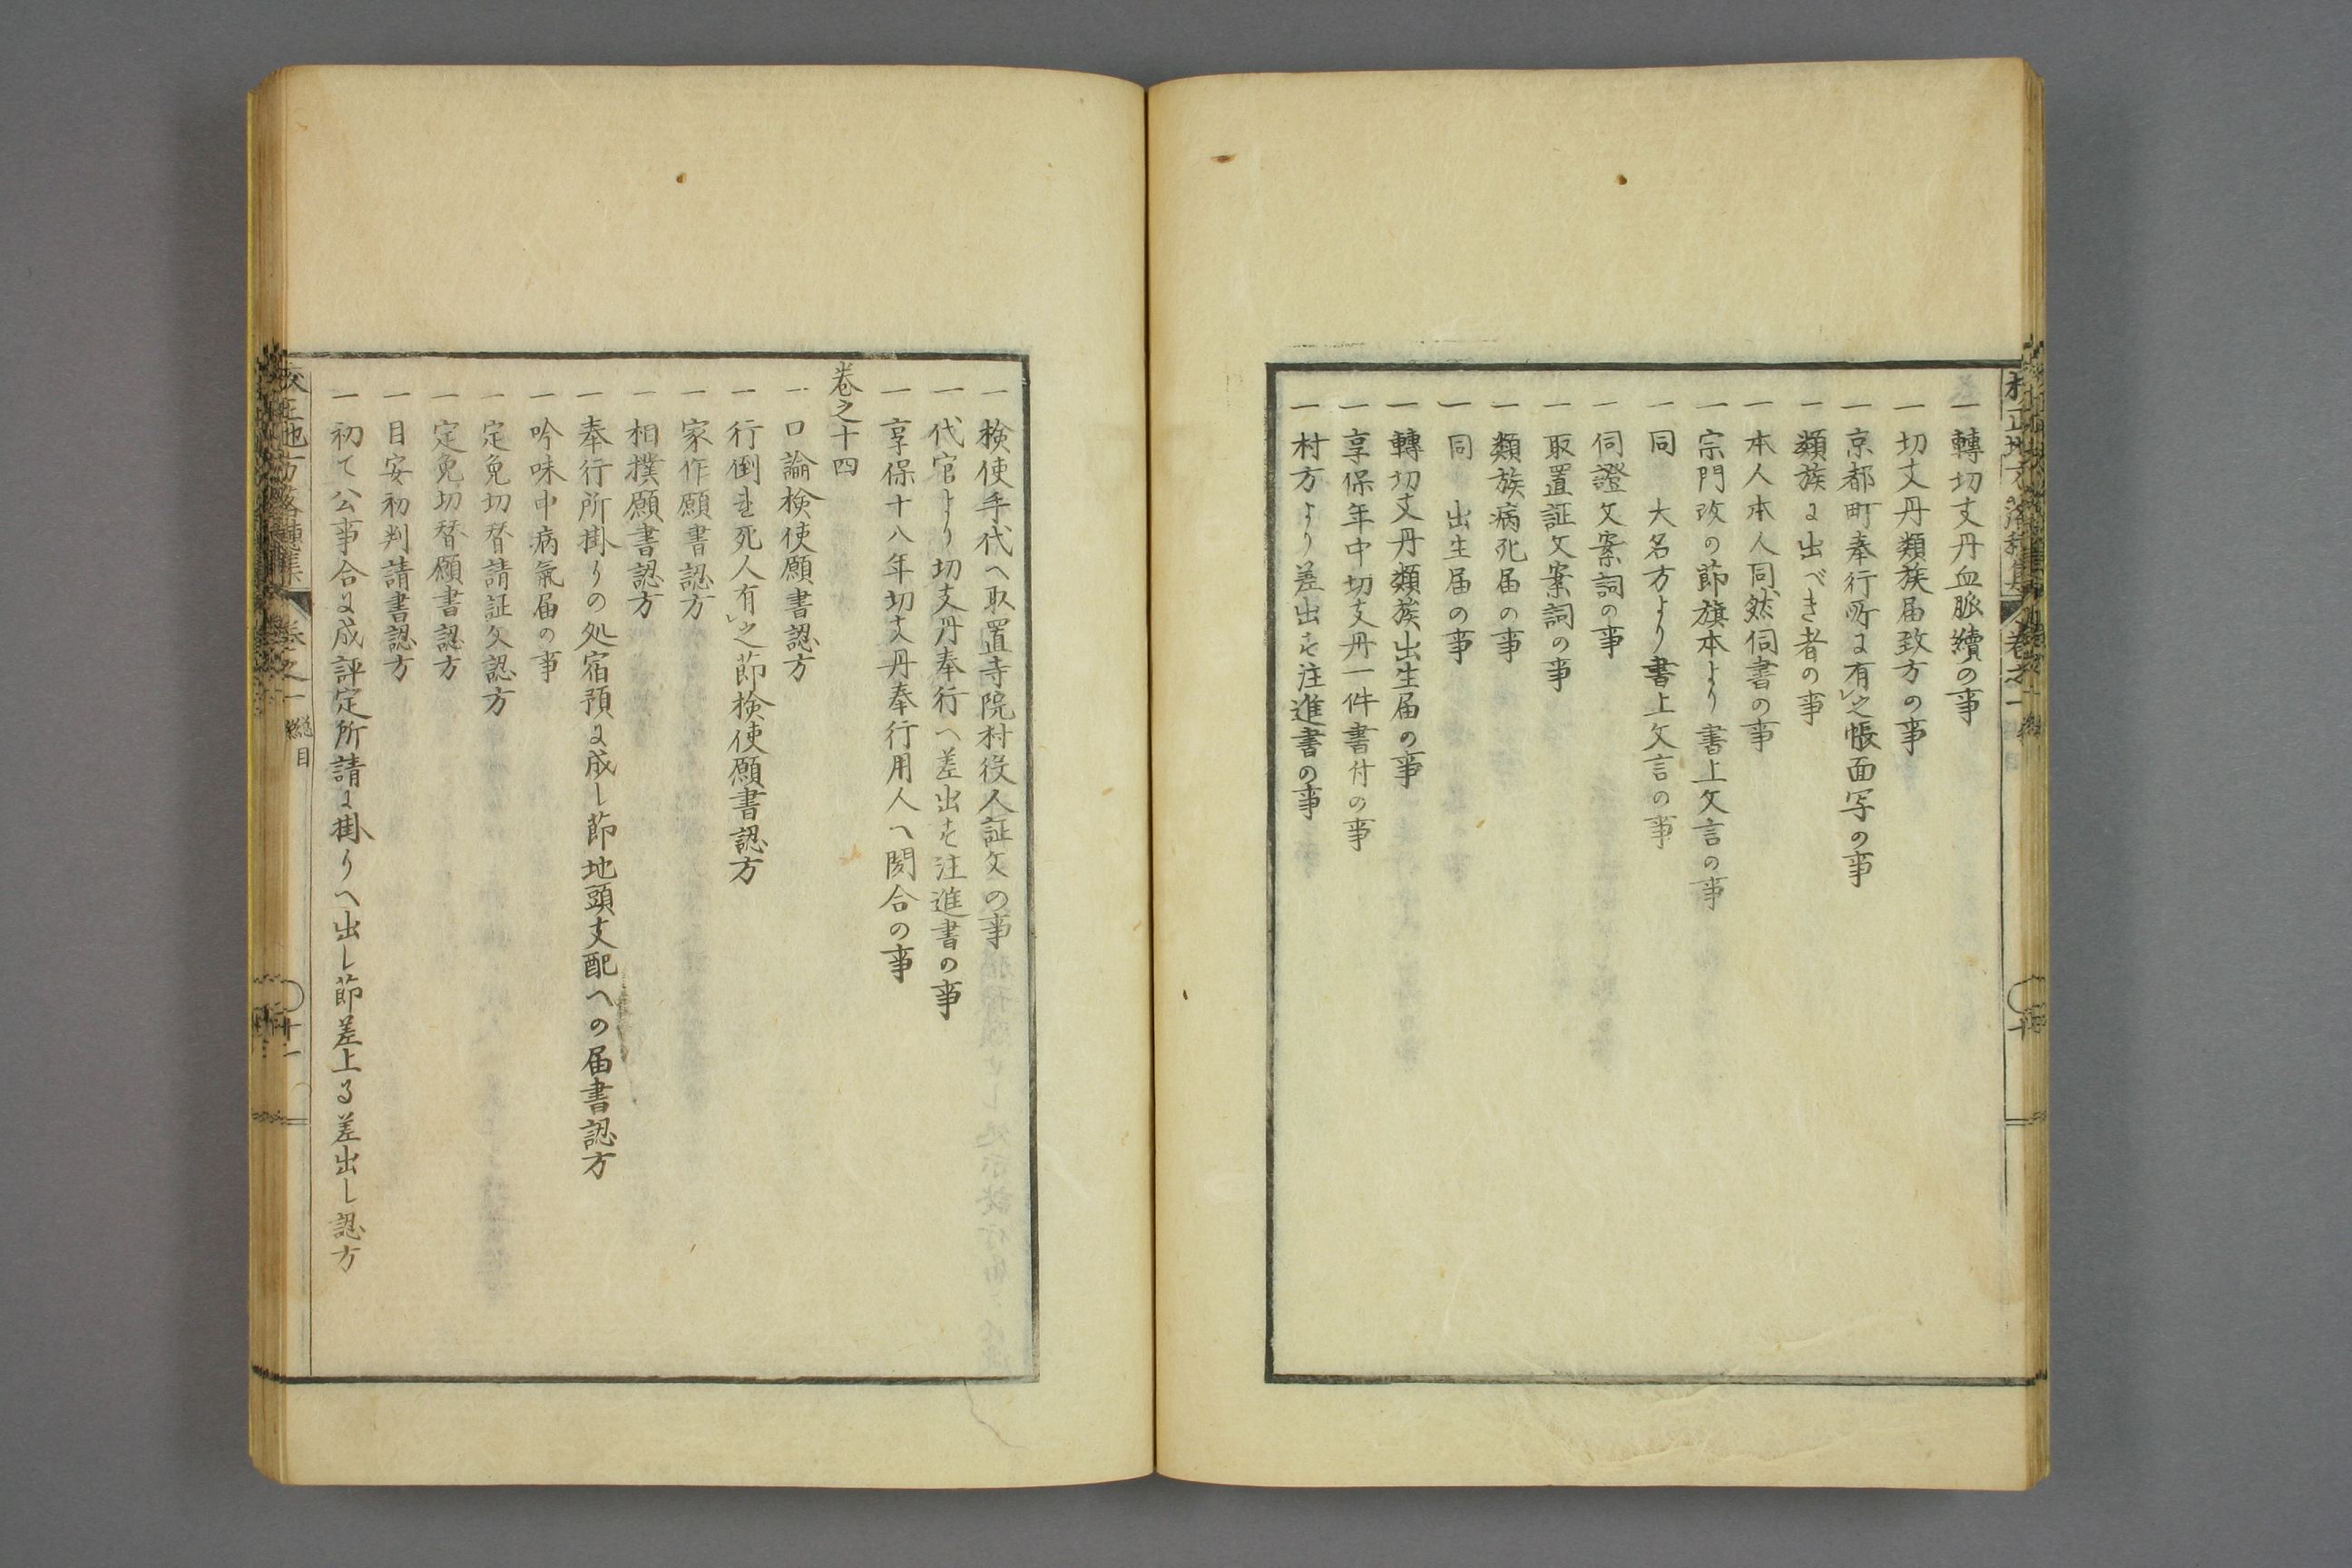 一轉切支丹血脈續の事
一切支丹類族届致方の事
一京都町奉行所に有之帳面写の事
一類族に出べき者の事
一本人本人同然伺書の事
一宗門改の節旗本より書上文言の事
一同　大名方より書上文言の事
一伺證文案詞の事
一取置証文案詞の事
一類族病死届の事
一同　出生届の事
一轉切支丹類族出生届の事
一享保年中切支丹一件書付の事
一村方より差出す注進書の事
一検使手代へ取置寺院村役人証文の事
一代官より切支丹奉行へ差出す注進書の事
一享保十八年切支丹奉行用人へ聞合の事
巻之十四
一口論検使願書認方
一行倒れ死人有之節検使願書認方
一家作願書認方
一相撲願書認方
一奉行所掛りの処宿預に成し節地頭支配への届書認方
一吟味中病氣届の事
一定免切替請証文認方
一定免切替願書認方
一目安初判請書認方
一初て公事合に成評定所請に掛りへ出し節差上る差出し認方
校正地方落穂集　巻之一　総目　十一